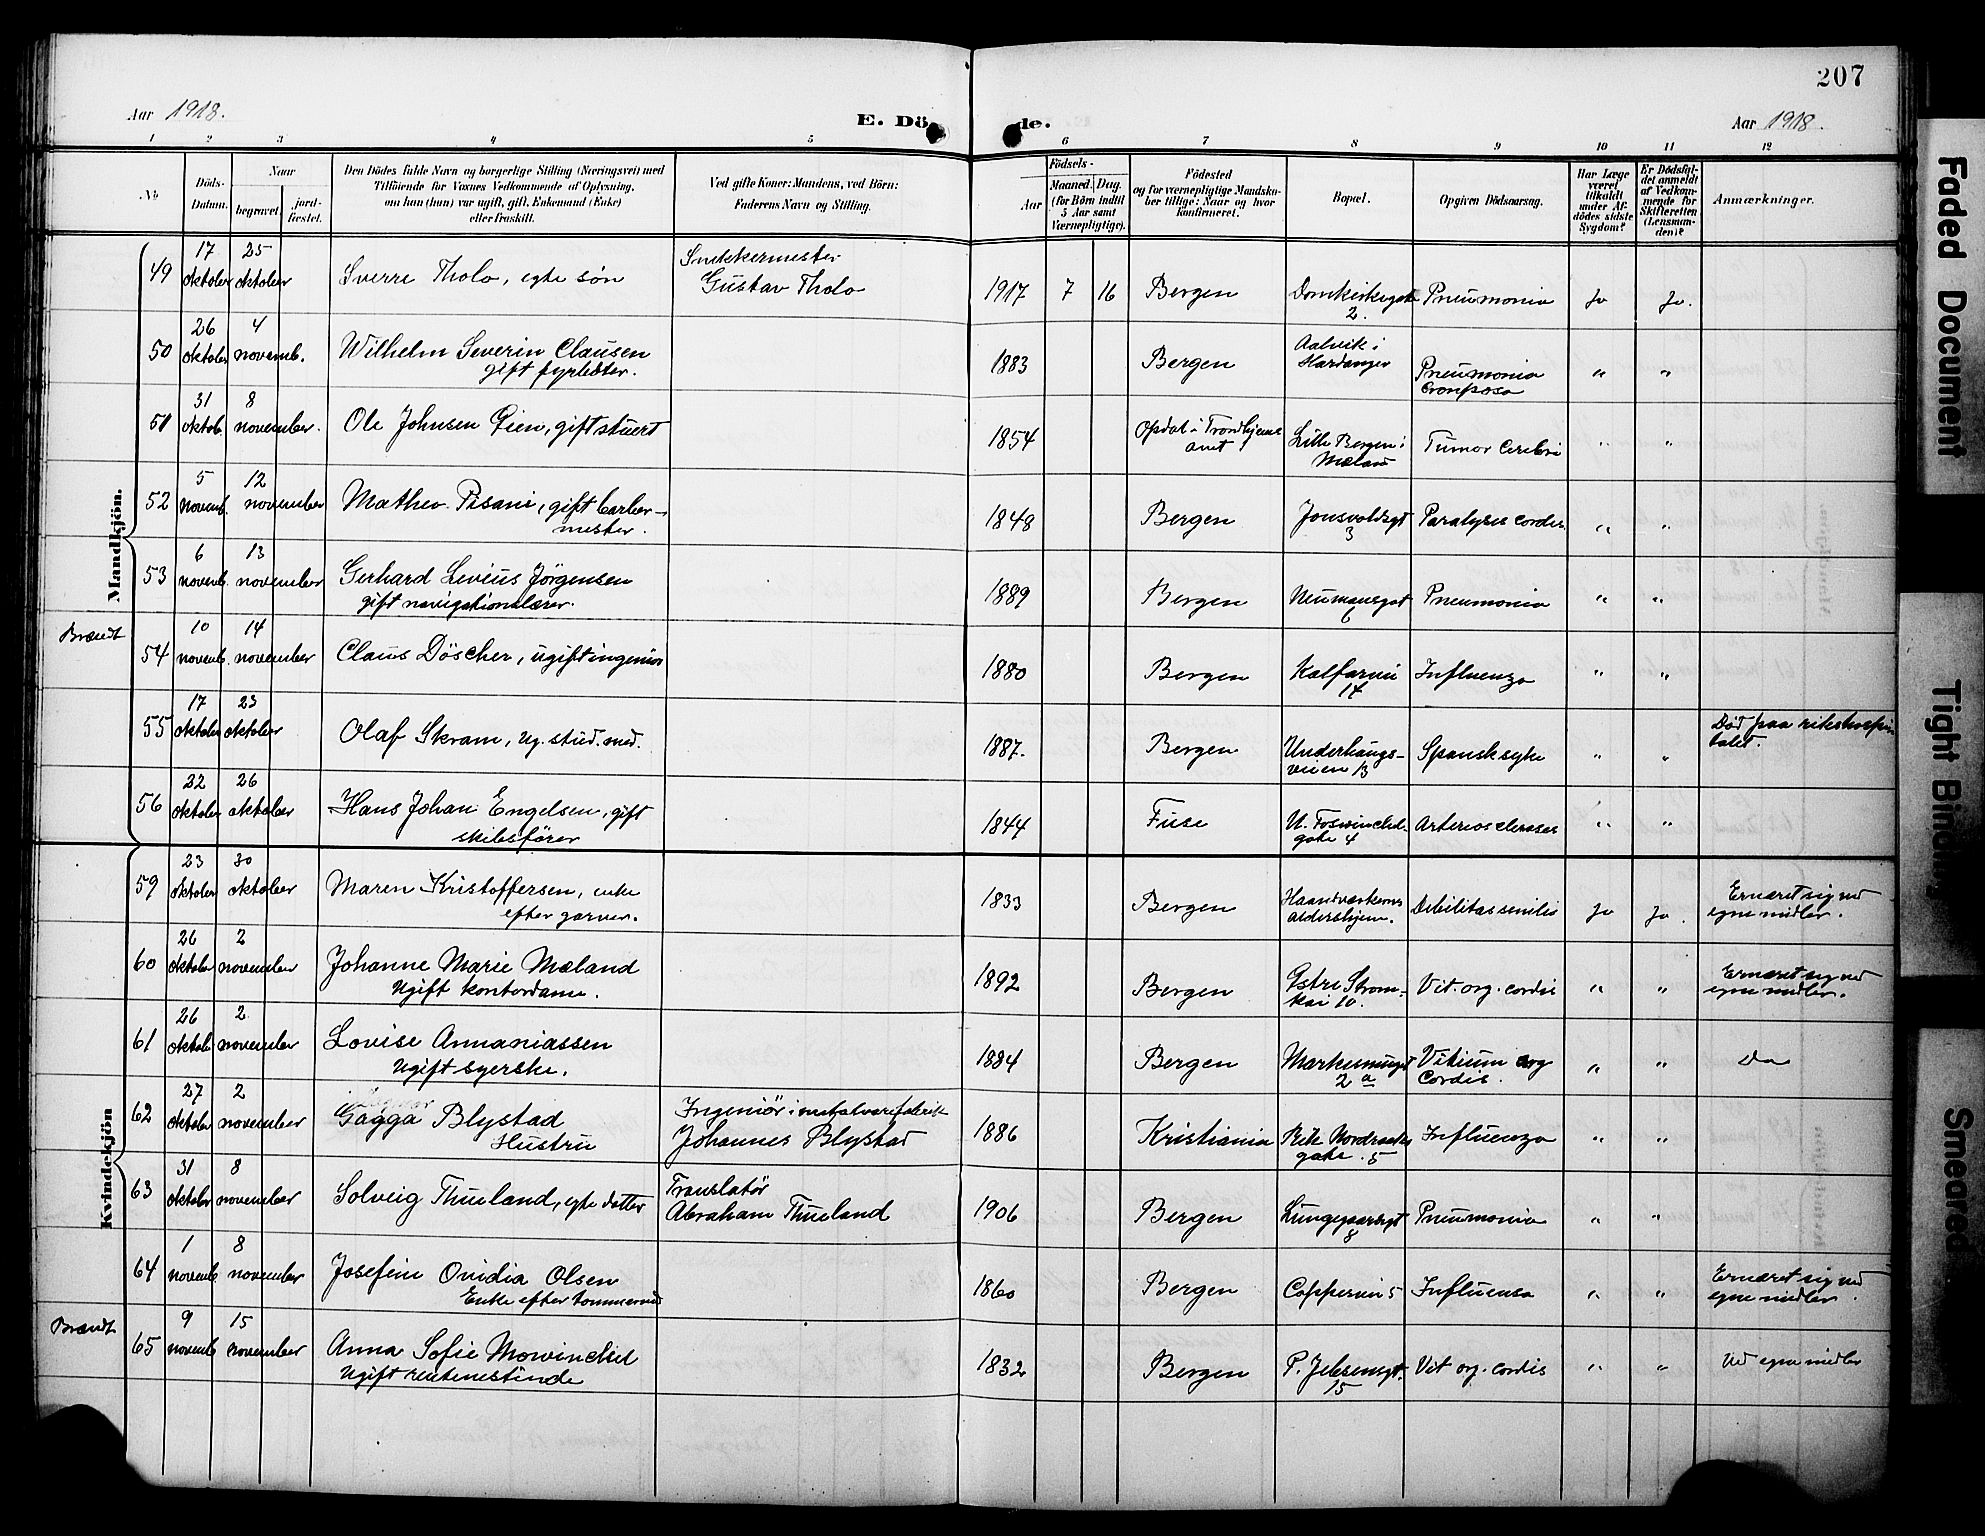 207
Aar 1918.
E. Döde.
Aar 1918.
1 2 3 4 5 6 7 8 9 10 11 12
No
Döds-Datum.
Naar
begravet.
jord-fæstet.
Den Dödes fulde Navn og borgerlige Stilling (Næringsvei) med
Tilföiende for Voxnes Vedkommende af Oplysning,
om han (hun) var ugift, gift, Enkemand (Enke)
eller fraskilt.
Ved gifte Koner: Mandens, ved Börn:
Faderens Navn og Stilling.
Födsels-
Aar
Maaned. Dag.
(for Börn indtil
5 Aar samt
Værnepligtige).
Födested
og for værnepligtige Mandska-
ber tillige: Naar og hvor
konfirmeret.
Bopæl.
Opgiven Dödsaarsag.
Har Læge
været
tilkaldt
under Af-
dödes sidste
Sygdom?
Er Dödsfal-
det anmeldt
af Vedkom-
mende for
Skifteretten
(Lensman-
den)?
Anmærkninger.
Mandkjön.
49 17 oktober 25 oktober Sverre Tholo, egte søn Snekkermester Gustav Tholo 1917 7 16 Bergen Domkirkegat 2. Pneumonia Ja Ja.
50 26 oktober 4 novemb. Wilhelm Severin Clausen gift fyrbøter. 1883 Bergen Aalvik i Hardanger Pneumonia Crouposa " "
51 31 oktob. 8 november. Ole Johnsen Gien, gift stuert 1854 Opdal i Trondhjems amt Lille Bergen i Mæland Tumor Cerebri " "
52 5 novemb. 12 november Matheo Pisani, gift barber-mester. 1848 Bergen Jonsvoldsgt 3 Paralysis cordis. " "
53 6 novemb. 13 november Gerhard Levius Jørgensen gift navigationslærer. 1889 Bergen Neumansgat 6 Pneumonia " "
Brændt
54 10 novemb. 14 november Claus Döscher, ugift ingeniør 1880 Bergen Kalfarvei 14 Influenza " "
55 17 oktober 23 oktober Olaf Skram, ug. stud. med. 1887. Bergen Underhaugs-veien 13 Spansksyke " " Død paa rikshospi-talet.
56 22 oktober 26 oktober Hans Johan Engelsen, gift skibsfører 1844 Fuse N. Foswinckel-gate 4 Arteriosclerosis " "
Kvindekjön
59 23 oktober 30 oktober Maren Kristoffersen, enke efter garver. 1833 Bergen Haandværkernes aldershjem. Debilitas senilis Ja Ja. Ernæret sig ved egne midler.
60 26 oktober 2 november Johanne Marie Mæland Ugift kontordame. 1892 Bergen Østre Strøm-kai 10. Vit. org. cordis " " Ernæret sig ved egne midler.
61 26 oktober 2 november Lovise Annaniassen Ugift syerske. 1884 Bergen Markeveiengt 2 a Vitium org Cordis. " " Do
62 27 oktober 2 november Gagga Blystad Hustru Ingeniør i metalvarefabrik Johannes Blystad 1886 Kristiania Rik Nordraaks gate. 5 Influenza " "
63 31 oktober 8 november Solveig Thueland, egte datter Translatør Abraham Thueland 1906 Bergen Lungegaardsgt 8 Pneumonia " "
64 1 novemb 8 november Josefine Ovidia Olsen Enke efter tømmermd 1860 Bergen Cappesvei 5 Influensa " " Ernæret sig ved egne midler.
Brændt
65 9 novemb 15 november Anna Sofie Mowinckel Ugift rentenistinde 1832 Bergen P. Jebsensgt. 15 Vit org. cordis " " Ved egne midler
Faded Document
Tight Binding
Smeared